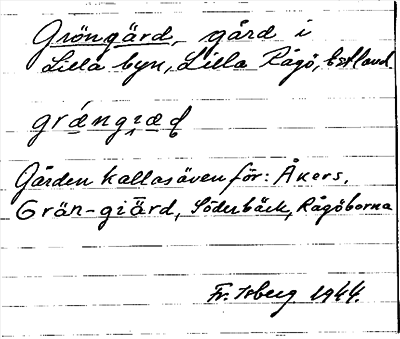 Gröngärd, gård i
Lilla byn, Lilla Rågö, Estland
grǽngi̯æɖ
Gården kallas även för: Åkers,
Grän-giärd, Söderbäck, Rågöborna
Fr. Isberg 1944.